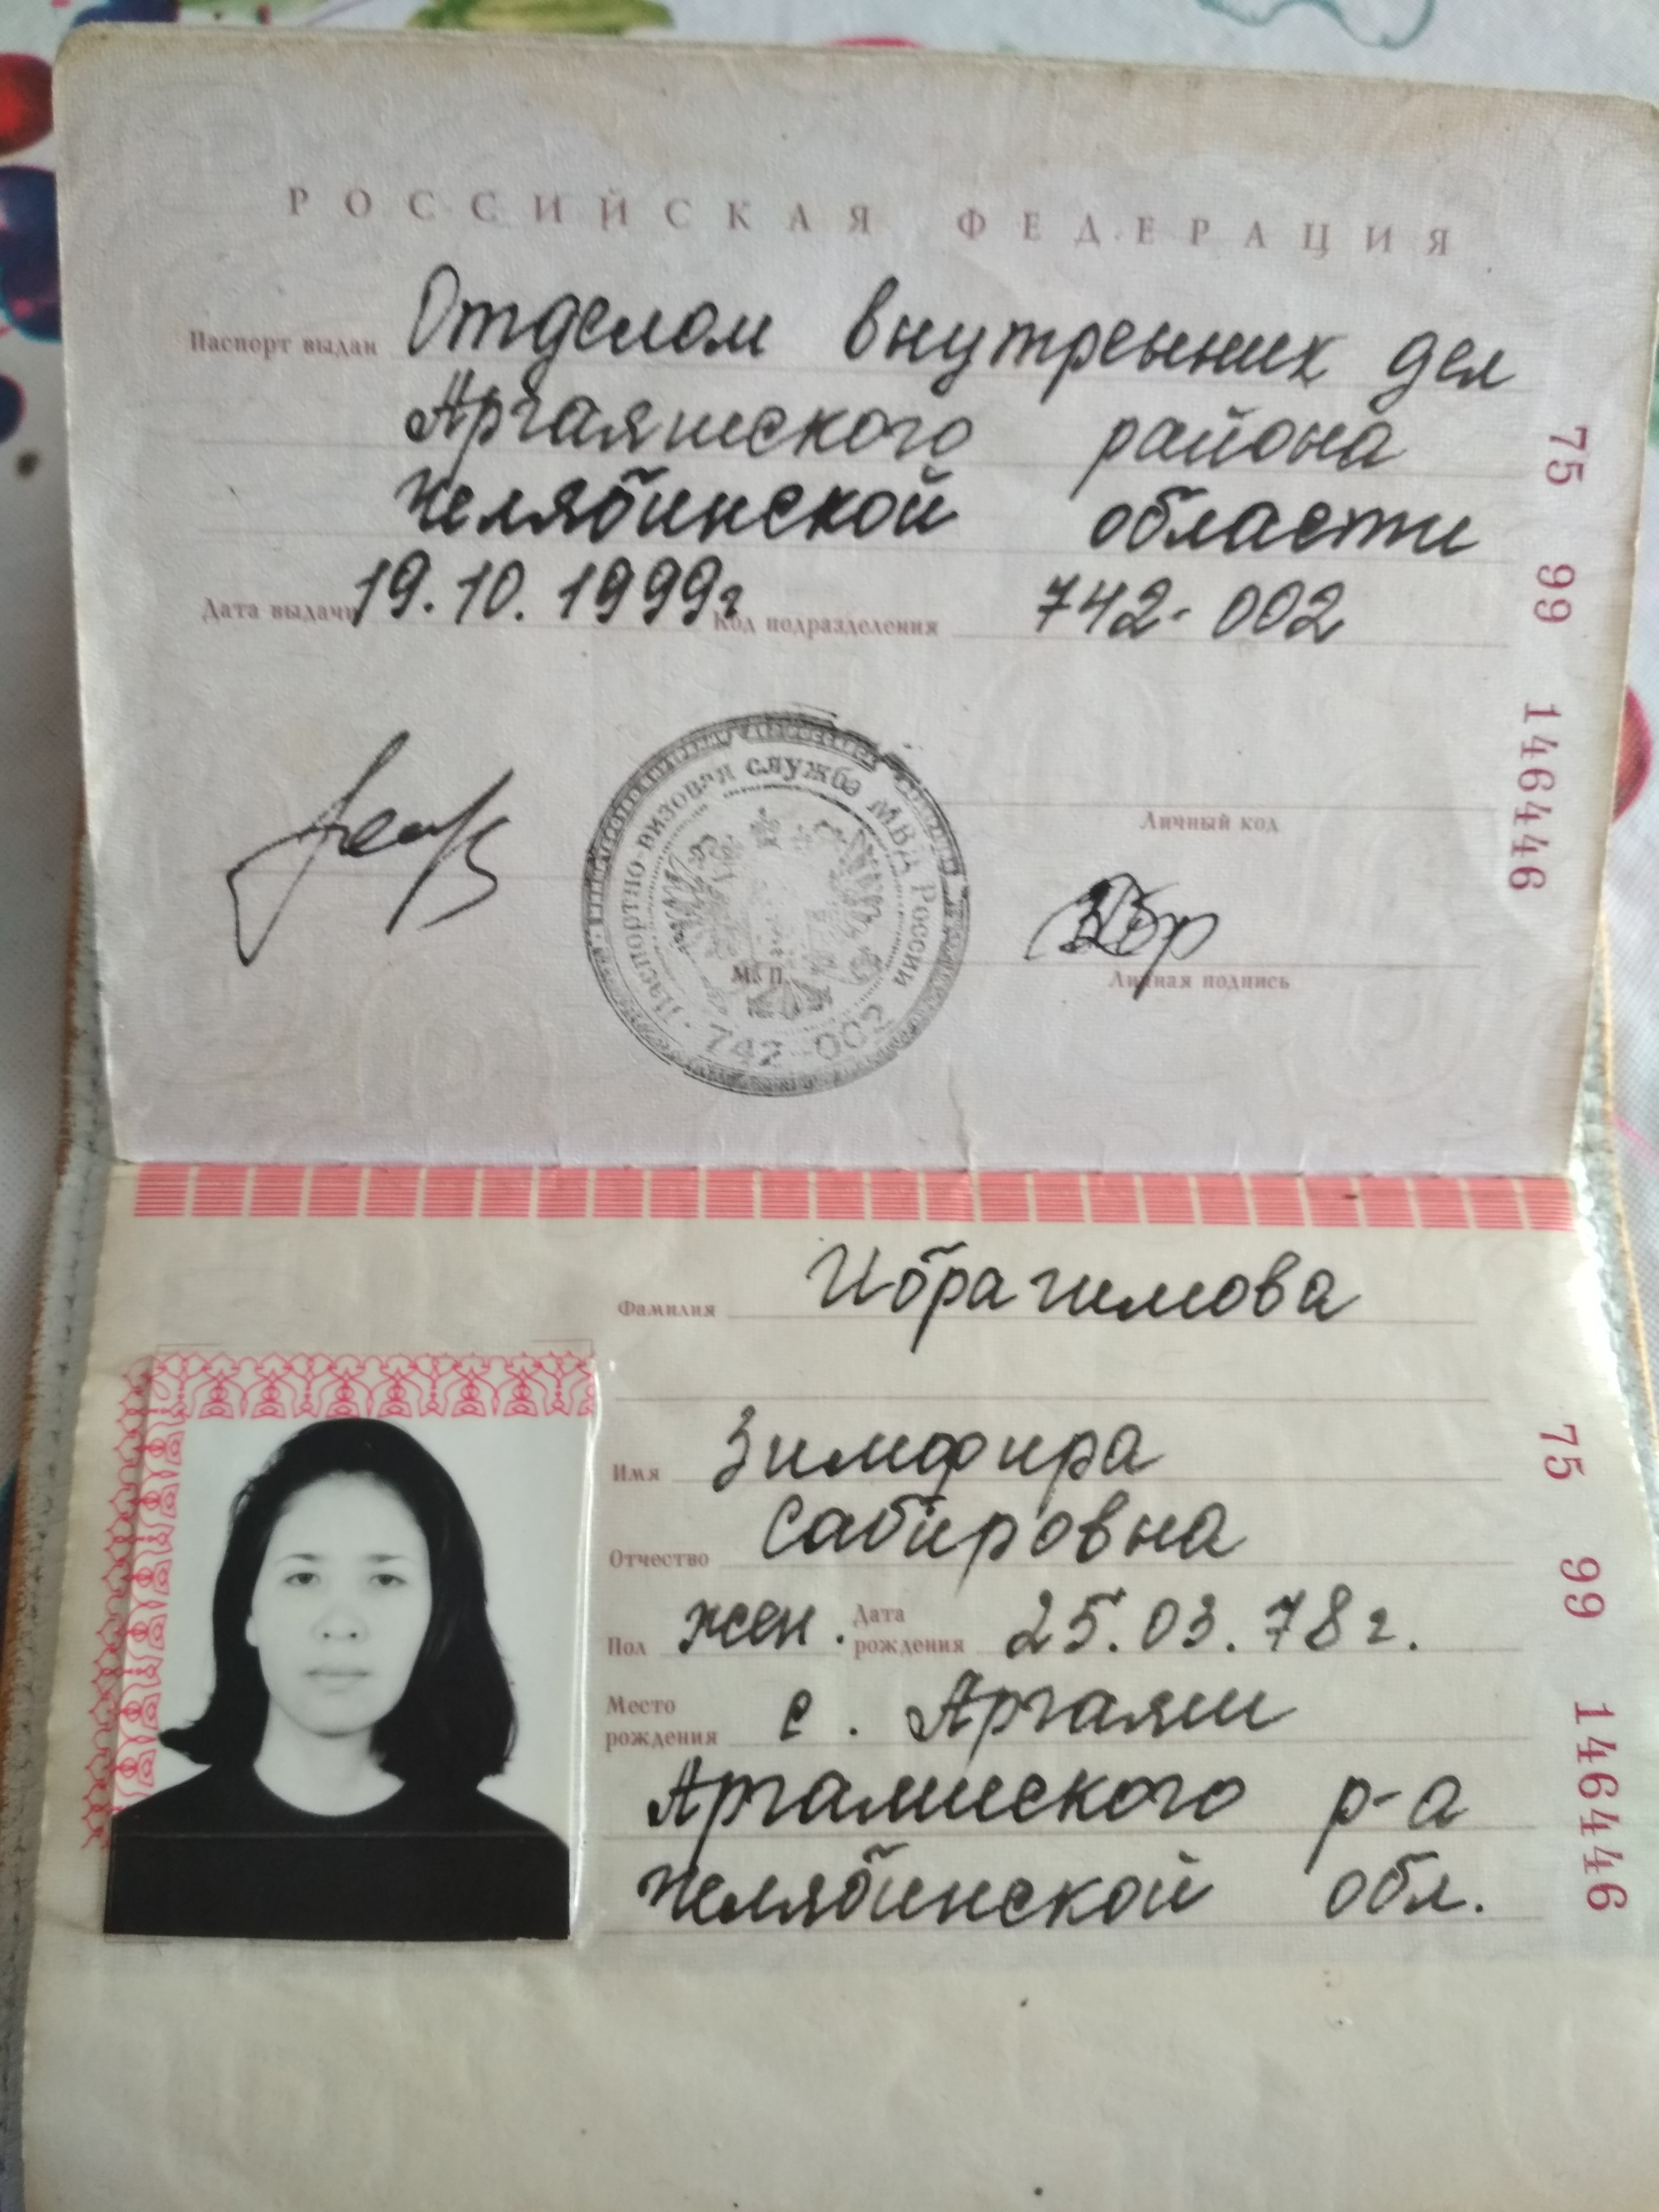 РОССИЙСКАЯ ФЕДЕРАЦИЯ
Паспорт выдан Отделом внутренних дел
Аргаяшского района
Челябинской области
Дата выдачи 19.10.1999г Код подразделения 742-002
Личный код
Паспортно-визовая служба МВД России
742-002
М.П.
Личная подпись
75 99 146446
Фамилия Ибрагимова
Имя Зимфира
Отчество Сабировна
Пол жен. Дата рождения 25.03.78г.
Место рождения с. Аргаяш
Аргаяшского р-а
Челябинской обл.
75 99 146446